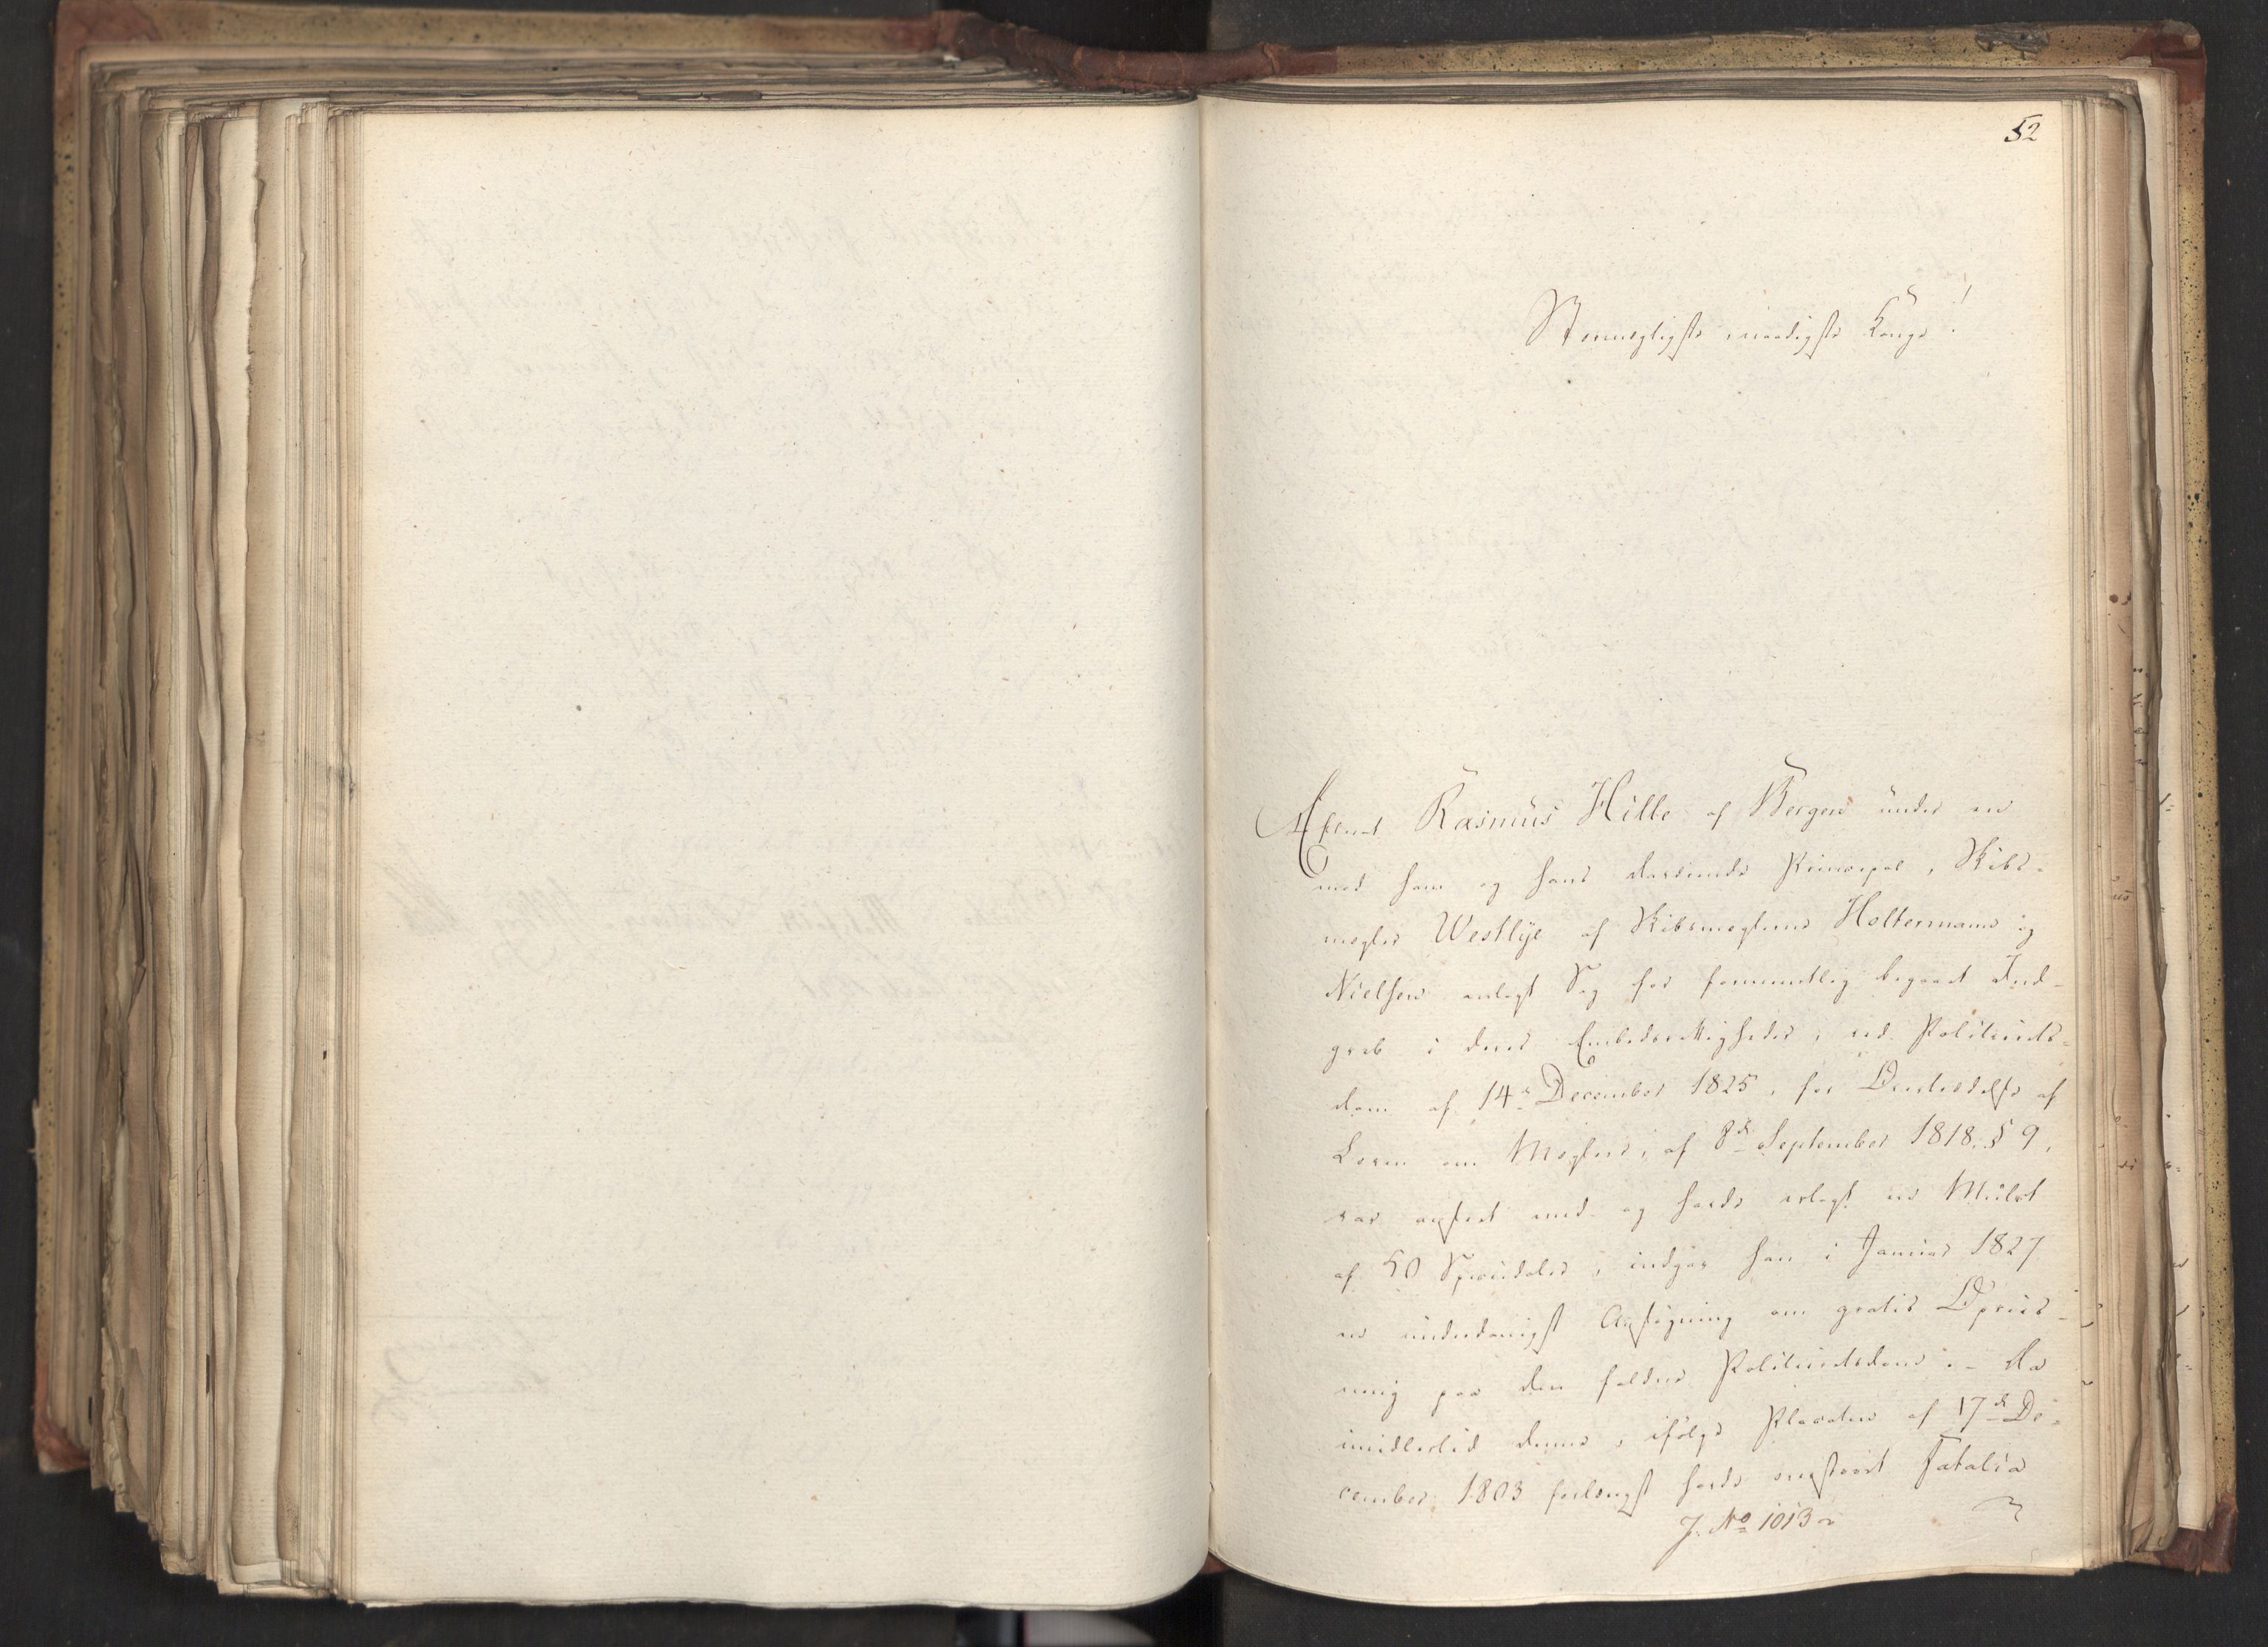 52
Stormægtigste, naadigste Konge!
Efterat Rasmus Hille af Bergen under en
mod ham og hans daværende Principal, Skibs-
mægler Westlye af Skibsmæglerne Holtermann og
Nielsen anlagt Sag for formeentlig begaaet Ind-
greb i deres Embedsrettigheder, ved Politierets-
dom af 14de December 1825, for Overtrædelse af
Loven om Mæglere, af 8de September 1818 § 9,
var anseet med og havde erlagt en Mulct
af 50 Speciedaler, indgav han i Januar 1827
en underdanigst Ansøgning om gratis Opreis-
ning paa den faldne Politieretsdom. - Da
imidlertid denne, ifølge Placaten af 17de De-
cember 1803 forlængst havde overstaaet Fatalia
J. No 1013